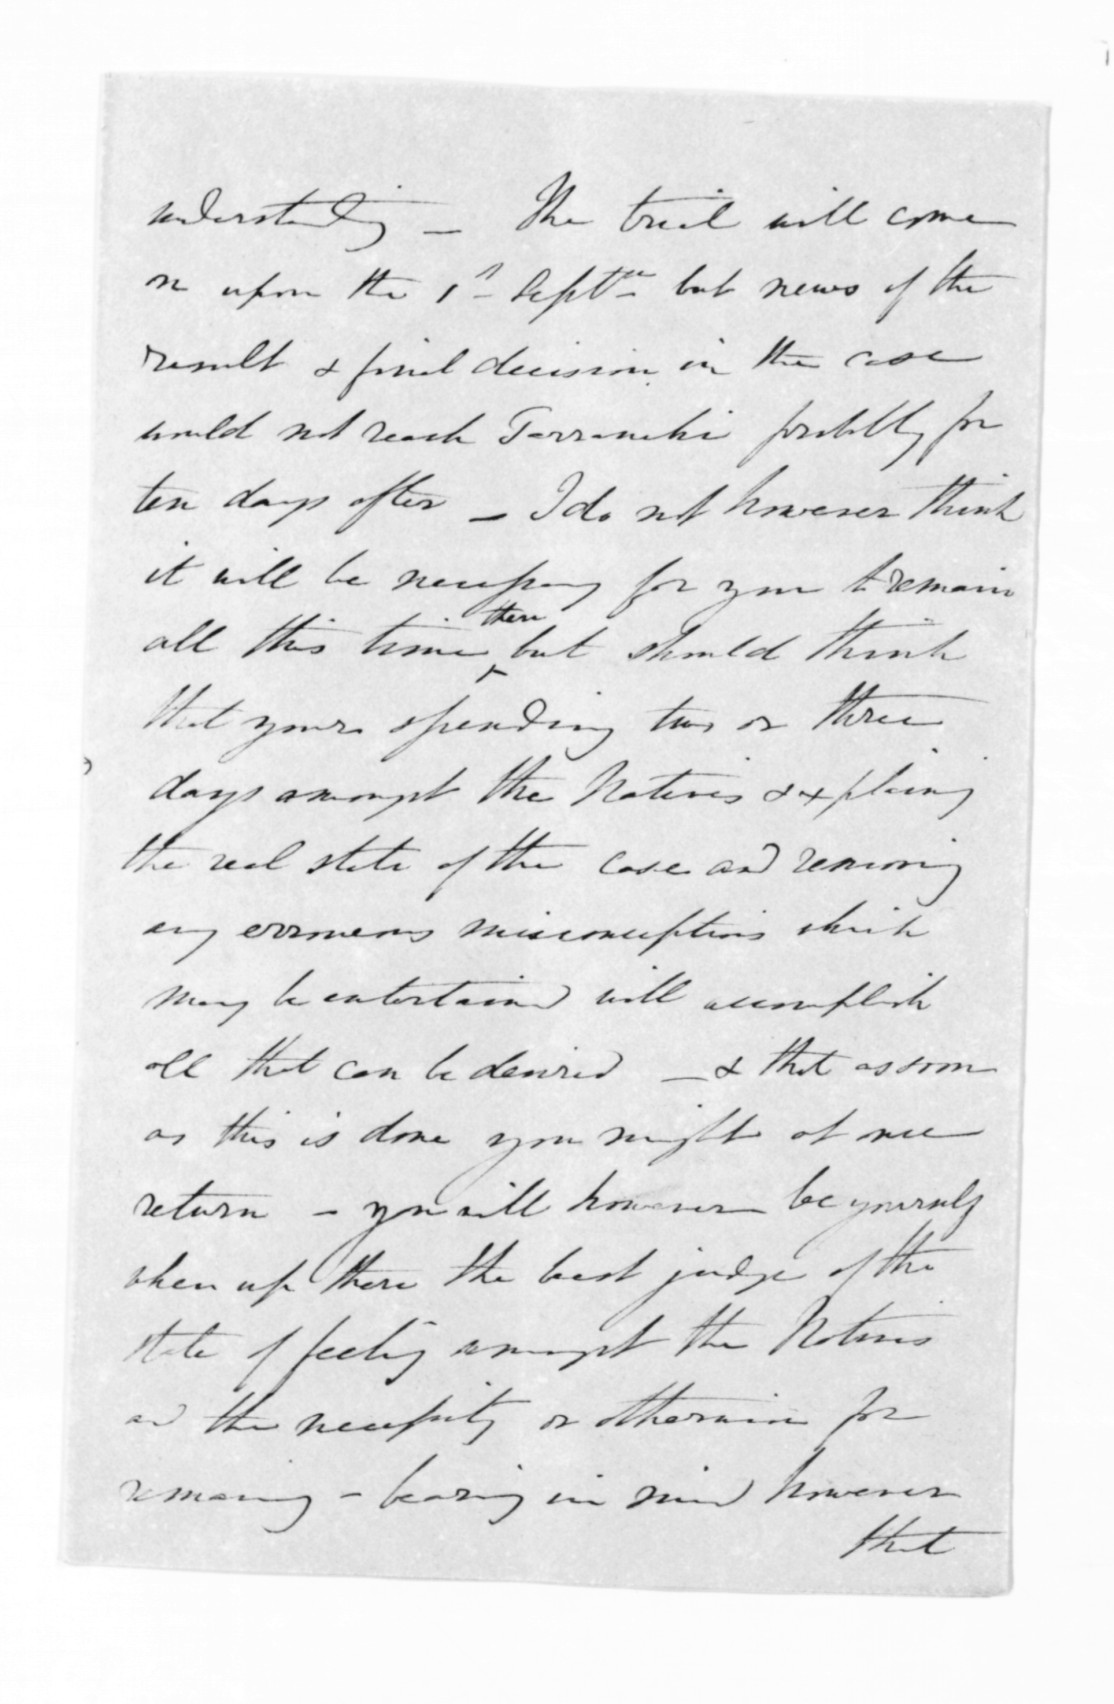 understanding – The trial will come
on upon the 1st Septr but news of the
result & final decision in the case
would not reach Tarranaki probably for
ten days after – I do not however think
it will be necessary for you to remain
all this time there but should think
that your spending two or three
days amongst the Natives & explaing
the real state of the case and removing
any erroneous misconceptions which
may be entertained will accomplish
all that can be desired – & that as soon
as this is done you might at once
return – you will however be yourself
when up there the best judge of the
state of feeling amongst the Natives
and the necessity or otherwise for
remaing – bearing in mind however
that